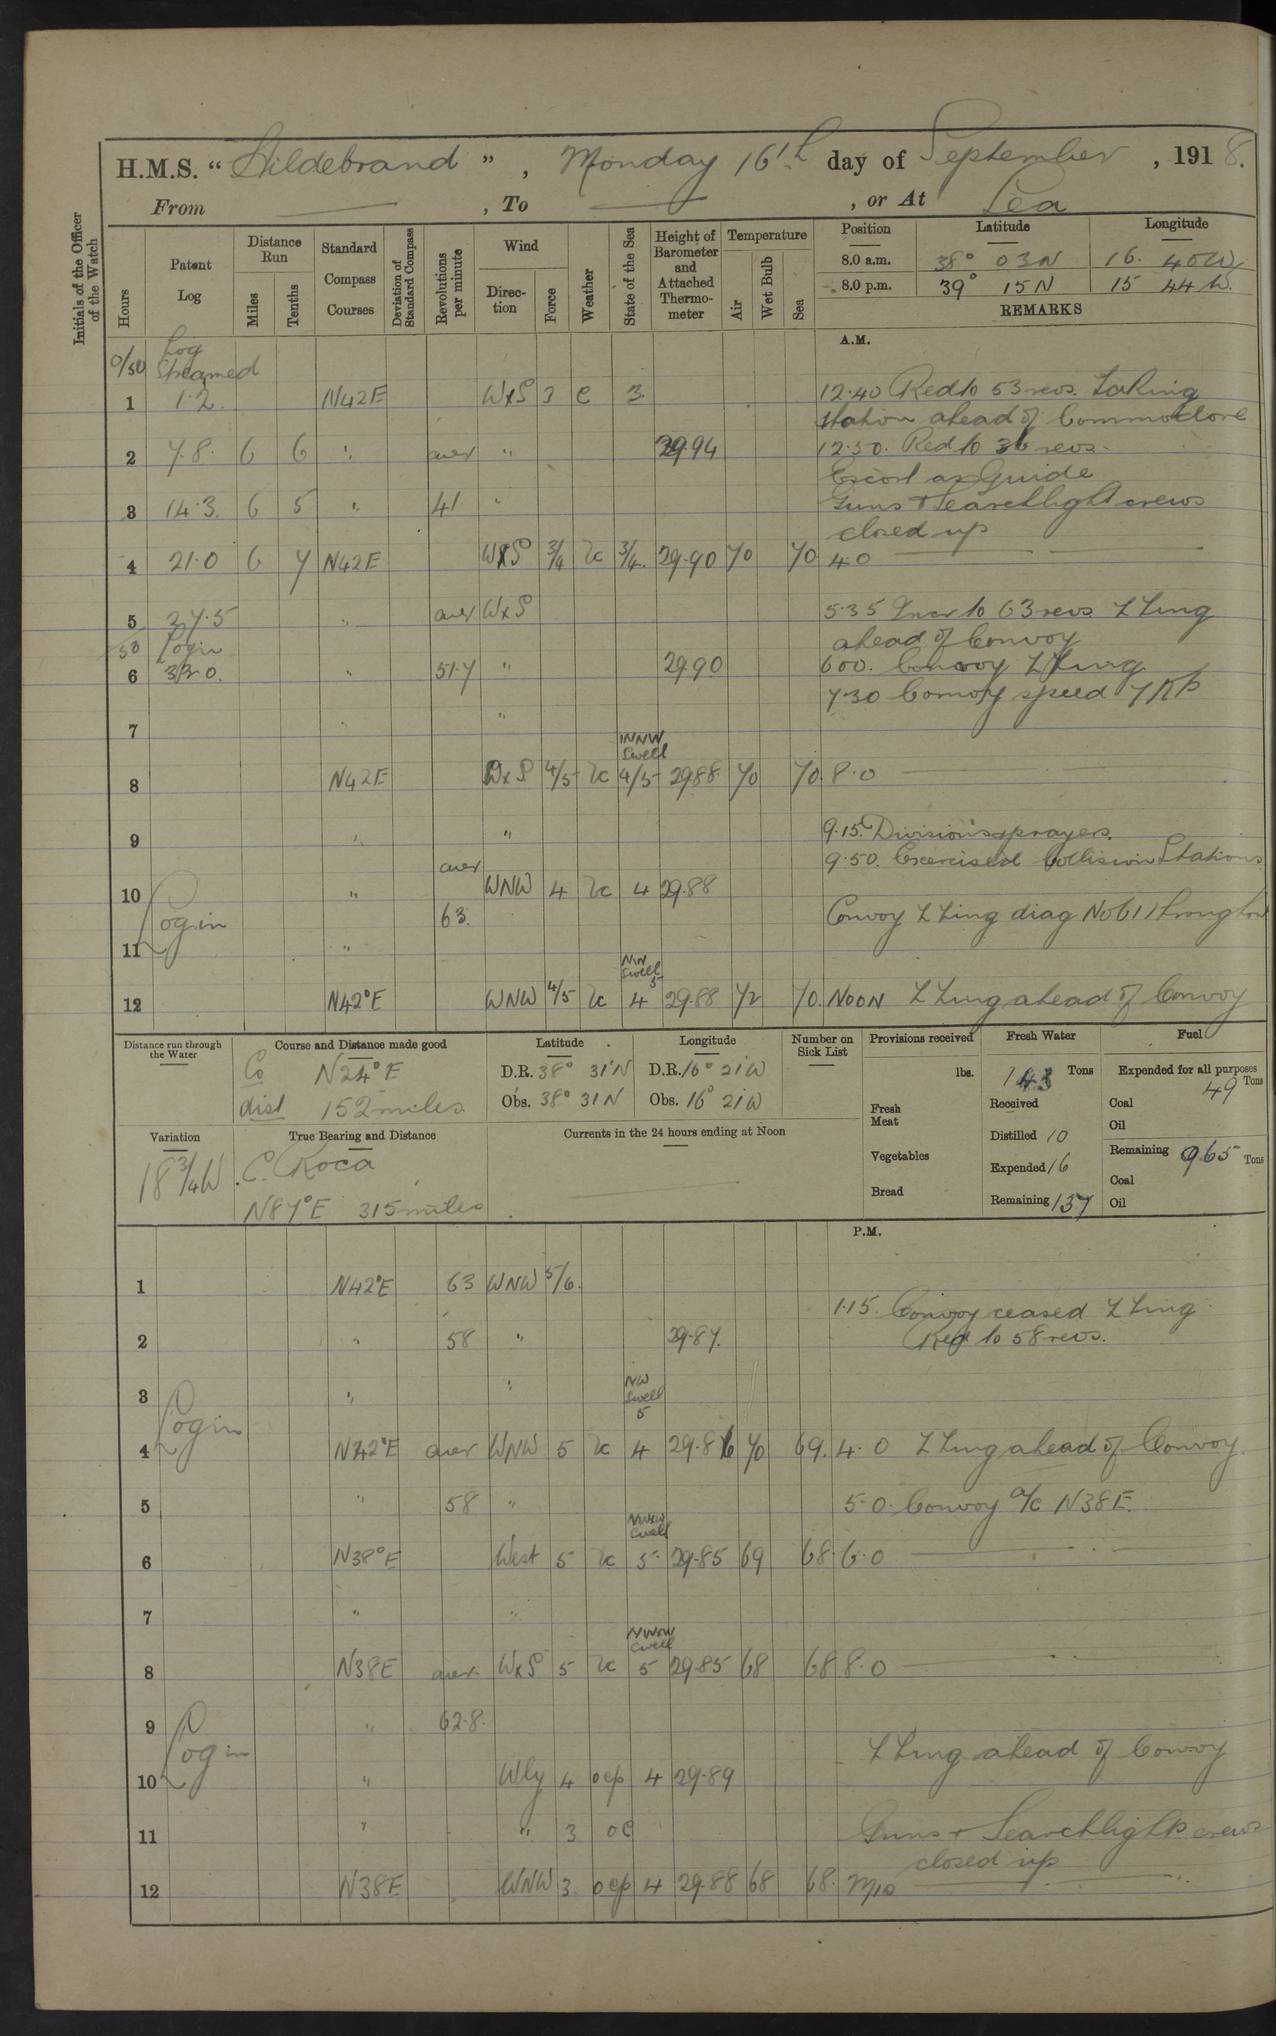 H.M.S. "Hildebrand", Monday 16th day of September, 1918.
From — , To — , or At Sea
Initials of the Officer of the Watch
Hours
Patent Log
Distance Run
Miles
Tenths
Standard Compass Courses
Deviation of Standard Compass
Revolutions per minute
Wind
Direction
Force
Weather
State of the Sea
Height of Barometer and Attached Thermometer
Temperature
Air
Wet Bulb
Sea
Position Latitude Longitude
8.0 a.m. 38° 03 N 16. 40 W
8.0 p.m. 39° 15 N 15 44 W.
REMARKS
A.M.
0/50 Log Streamed
1 1.2. N42E WxS 3 c 3 12.40 Red to 53 revs. Taking
station ahead of Commodore
2 7.8. 6 6 " aver " 29.94 12.50. Red to 36 revs.
Escort as Guide
3 14.3. 6 5 " 41 " Guns & Searchlight crews
closed up
4 21.0 6 7 N42E WxS 3/4 bc 3/4. 29.90 70 70 4.0
5 27.5 " aver WxS 5.35 Incr to 63 revs Z Zing
50 Log in ahead of Convoy
6 33.0. " 51.7 " 29.90 6.00. Convoy Z Zing
7.30 Convoy speed 7 Kts
7 " "
WNW Swell
8 N42E WxS 4/5 bc 4/5 29.88 70 70. 8.0
9 " " 9.15. Divisions & prayers.
aver 9.50. Exercised Collision Stations
10 " WNW 4 bc 4 29.88
Log in 63. Convoy Z Zing diag No 61 throughout
11 "
NW Swell 5
12 N42°E WNW 4/5 bc 4 29.88 72 70. NOON Z Zing ahead of Convoy
Distance run through the Water
Course and Distance made good
Co N24°E
dist 152 miles.
Latitude
D.R. 38° 31'N
Obs. 38° 31 N
Longitude
D.R. 16° 21'W
Obs. 16° 21'W
Number on Sick List
Provisions received
lbs.
Fresh Meat
Vegetables
Bread
Fresh Water
143 Tons
Received
Distilled 10
Expended 16
Remaining 137
Fuel
Expended for all purposes
49 Tons
Coal
Oil
Remaining 965 Tons
Coal
Oil
Variation
18 3/4 W
True Bearing and Distance
C. Roca
N87°E 315 miles
Currents in the 24 hours ending at Noon
P.M.
1 N42°E 63 WNW 5/6.
1.15. Convoy ceased Z Zing
2 " 58 " 29.87. Red to 58 revs.
3 " "
NW Swell 5
Log in
4 N42°E aver WNW 5 bc 4 29.86 70 69. 4.0 Z Zing ahead of Convoy
5 " 58 " 5.0. Convoy a/c N38E.
Swell
6 N38°E West 5 bc 5 29.85 69 68. 6.0
7 " "
Swell
8 N38E aver WxS 5 bc 5 29.85 68 68 8.0
9 " 62.8.
Log in Z Zing ahead of Convoy
10 " Wly 4 ocp 4 29.89
11 " " 3 oc Guns & Searchlights crews
closed up
12 N38E WNW 3. ocp 4 29.88 68 68. Mid